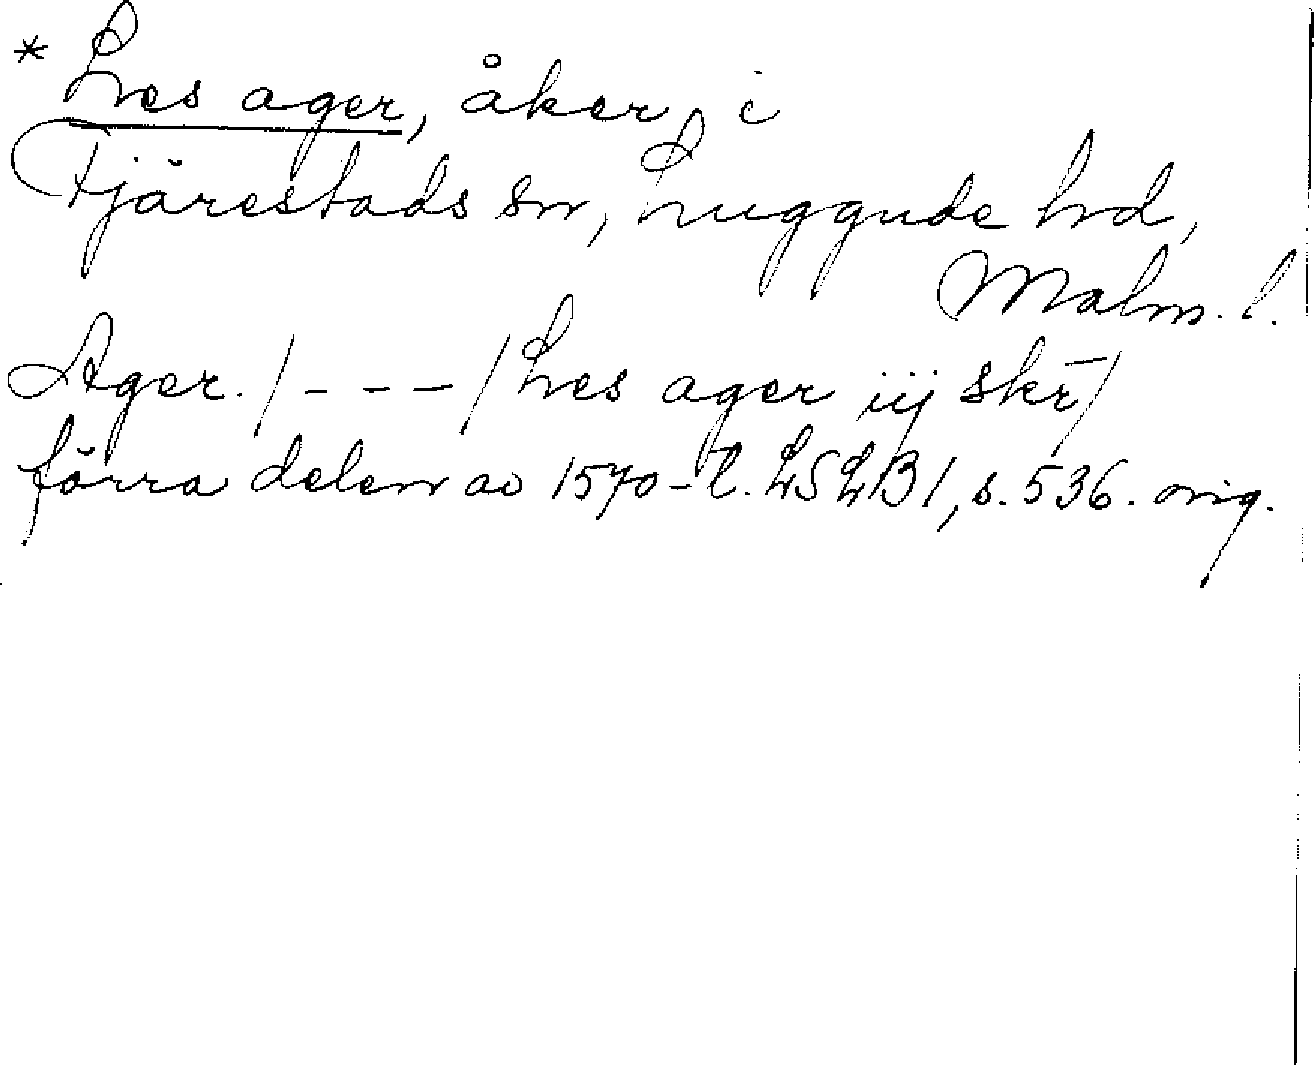 * Lves ager, åker, i
Fjärestads sn, Luggude hd,
Malm. l.
Ager. / - - - / Lves ager iij skr̄ /
förra delen av 1570-t. LSLB I, s. 536. orig.